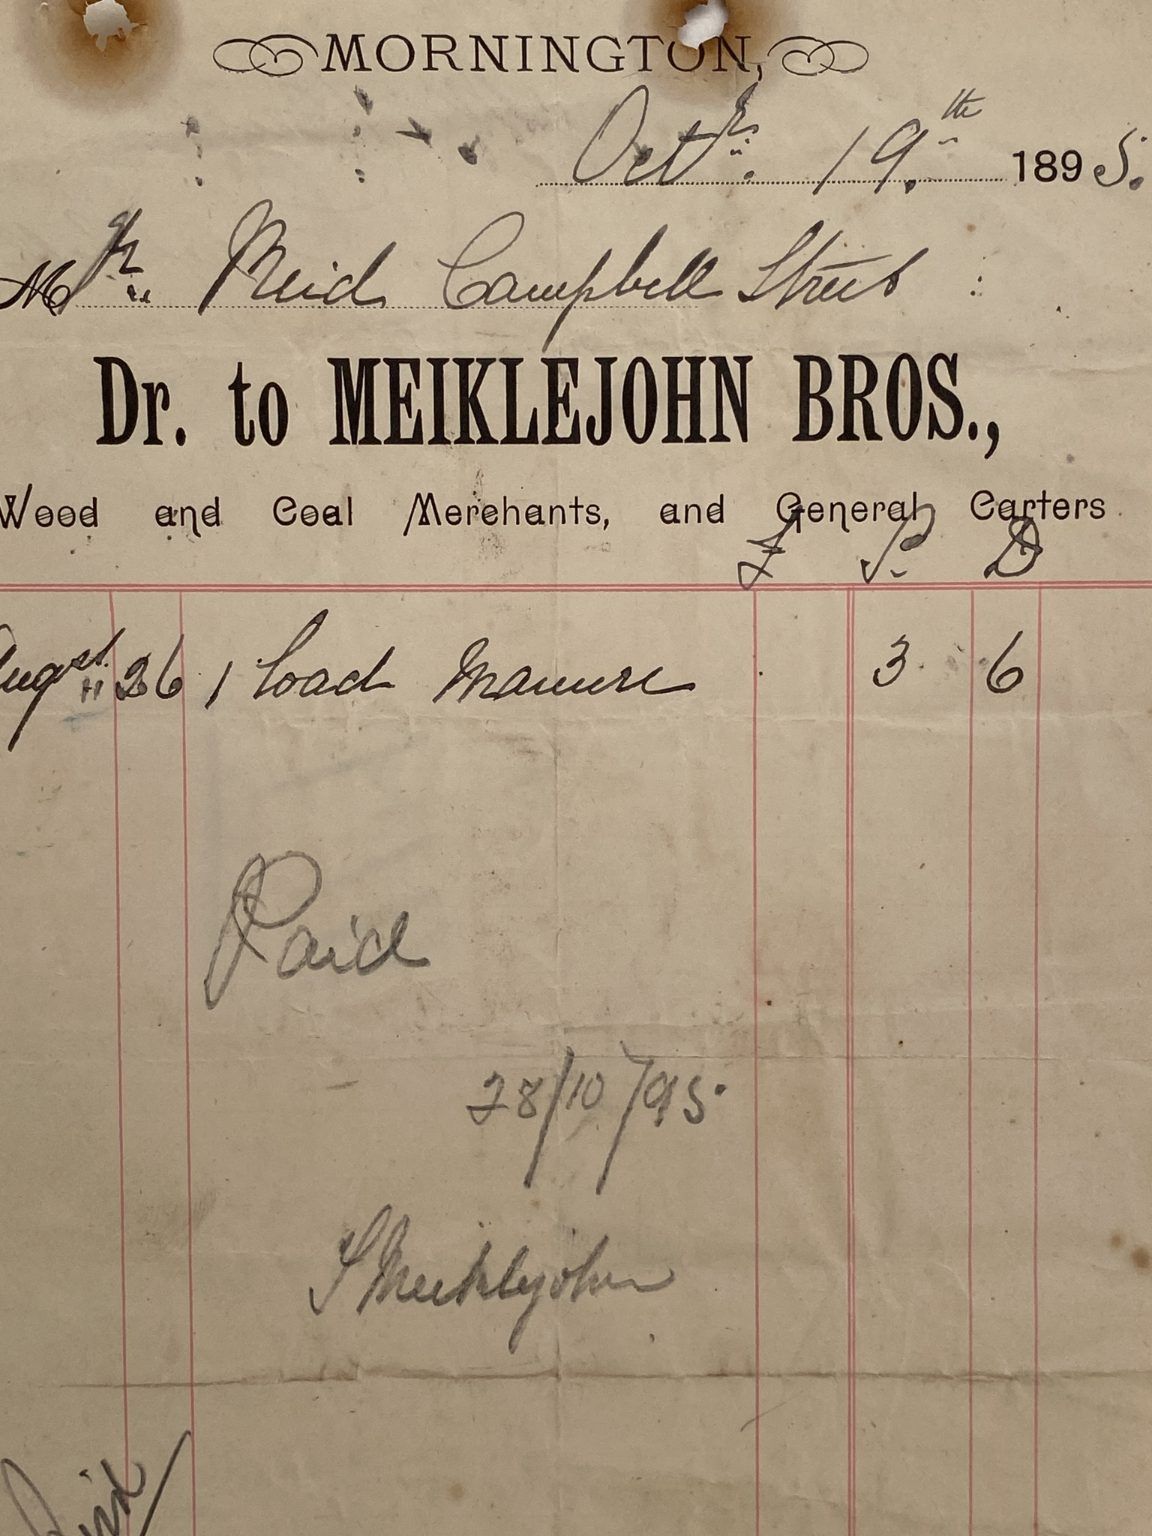 MORNINGTON,
Octr. 19th 1895.
Mr Reid Campbell Street :
Dr. to MEIKLEJOHN BROS.,
Wood and Coal Merchants, and General Carters
£ S. D
Augst 26 1 load Manure 3. 6
Paid
28/10/95.
S Meiklejohn
Paid